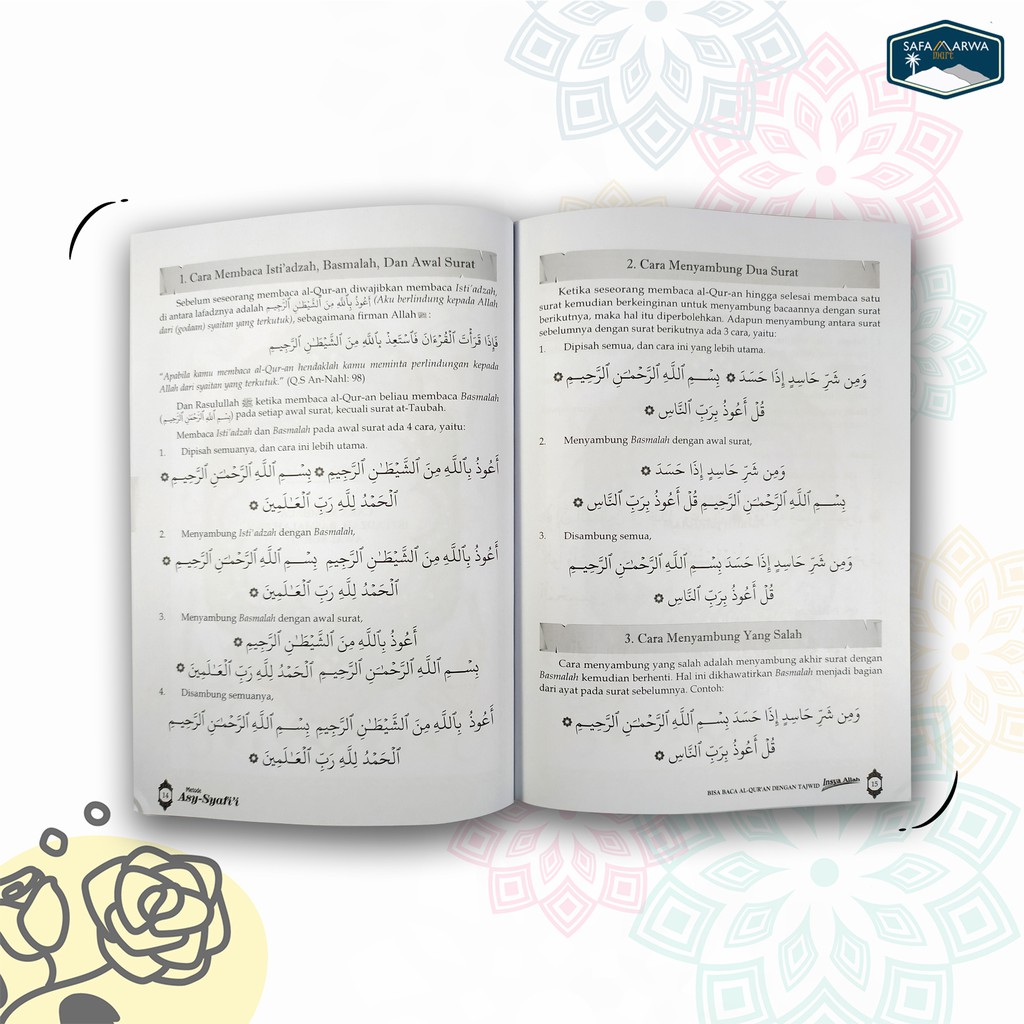 SAFA MARWA
mart
1. Cara Membaca Isti'adzah, Basmalah, Dan Awal Surat
Sebelum seseorang membaca al-Qur-an diwajibkan membaca Isti'adzah,
di antara lafadznya adalah أَعُوذُ بِٱللَّهِ مِنَ ٱلشَّيْطَـٰنِ ٱلرَّجِيمِ (Aku berlindung kepada Allah
dari (godam) syaitan yang terkutuk), sebagaimana firman Allah ﷻ :
فَإِذَا قَرَأْتَ ٱلْقُرْءَانَ فَٱسْتَعِذْ بِٱللَّهِ مِنَ ٱلشَّيْطَـٰنِ ٱلرَّجِيمِ
"Apabila kamu membaca al-Qur-an hendaklah kamu meminta perlindungan kepada
Allah dari syaitan yang terkutuk." (Q.S An-Nahl: 98)
Dan Rasulullah ﷺ ketika membaca al-Qur-an beliau membaca Basmalah
(بِسْمِ ٱللَّهِ ٱلرَّحْمَـٰنِ ٱلرَّحِيمِ) pada setiap awal surat, kecuali surat at-Taubah.
Membaca Isti'adzah dan Basmalah pada awal surat ada 4 cara, yaitu:
1. Dipisah semuanya, dan cara ini lebih utama.
أَعُوذُ بِٱللَّهِ مِنَ ٱلشَّيْطَـٰنِ ٱلرَّجِيمِ ۞ بِسْمِ ٱللَّهِ ٱلرَّحْمَـٰنِ ٱلرَّحِيمِ ۞
ٱلْحَمْدُ لِلَّهِ رَبِّ ٱلْعَـٰلَمِينَ ۞
2. Menyambung Isti'adzah dengan Basmalah,
أَعُوذُ بِٱللَّهِ مِنَ ٱلشَّيْطَـٰنِ ٱلرَّجِيمِ بِسْمِ ٱللَّهِ ٱلرَّحْمَـٰنِ ٱلرَّحِيمِ ۞
ٱلْحَمْدُ لِلَّهِ رَبِّ ٱلْعَـٰلَمِينَ ۞
3. Menyambung Basmalah dengan awal surat,
أَعُوذُ بِٱللَّهِ مِنَ ٱلشَّيْطَـٰنِ ٱلرَّجِيمِ ۞
بِسْمِ ٱللَّهِ ٱلرَّحْمَـٰنِ ٱلرَّحِيمِ ٱلْحَمْدُ لِلَّهِ رَبِّ ٱلْعَـٰلَمِينَ ۞
4. Disambung semuanya,
أَعُوذُ بِٱللَّهِ مِنَ ٱلشَّيْطَـٰنِ ٱلرَّجِيمِ بِسْمِ ٱللَّهِ ٱلرَّحْمَـٰنِ ٱلرَّحِيمِ
ٱلْحَمْدُ لِلَّهِ رَبِّ ٱلْعَـٰلَمِينَ ۞
14 Metode
Asy-Syafi'i
2. Cara Menyambung Dua Surat
Ketika seseorang membaca al-Qur-an hingga selesai membaca satu
surat kemudian berkeinginan untuk menyambung bacaannya dengan surat
berikutnya, maka hal itu diperbolehkan. Adapun menyambung antara surat
sebelumnya dengan surat berikutnya ada 3 cara, yaitu:
1. Dipisah semua, dan cara ini yang lebih utama.
وَمِن شَرِّ حَاسِدٍ إِذَا حَسَدَ ۞ بِسْمِ ٱللَّهِ ٱلرَّحْمَـٰنِ ٱلرَّحِيمِ ۞
قُلْ أَعُوذُ بِرَبِّ ٱلنَّاسِ ۞
2. Menyambung Basmalah dengan awal surat,
وَمِن شَرِّ حَاسِدٍ إِذَا حَسَدَ ۞
بِسْمِ ٱللَّهِ ٱلرَّحْمَـٰنِ ٱلرَّحِيمِ قُلْ أَعُوذُ بِرَبِّ ٱلنَّاسِ ۞
3. Disambung semua,
وَمِن شَرِّ حَاسِدٍ إِذَا حَسَدَ بِسْمِ ٱللَّهِ ٱلرَّحْمَـٰنِ ٱلرَّحِيمِ
قُلْ أَعُوذُ بِرَبِّ ٱلنَّاسِ ۞
3. Cara Menyambung Yang Salah
Cara menyambung yang salah adalah menyambung akhir surat dengan
Basmalah kemudian berhenti. Hal ini dikhawatirkan Basmalah menjadi bagian
dari ayat pada surat sebelumnya. Contoh:
وَمِن شَرِّ حَاسِدٍ إِذَا حَسَدَ بِسْمِ ٱللَّهِ ٱلرَّحْمَـٰنِ ٱلرَّحِيمِ ۞
قُلْ أَعُوذُ بِرَبِّ ٱلنَّاسِ ۞
BISA BACA AL-QUR'AN DENGAN TAJWID Insya Allah 15